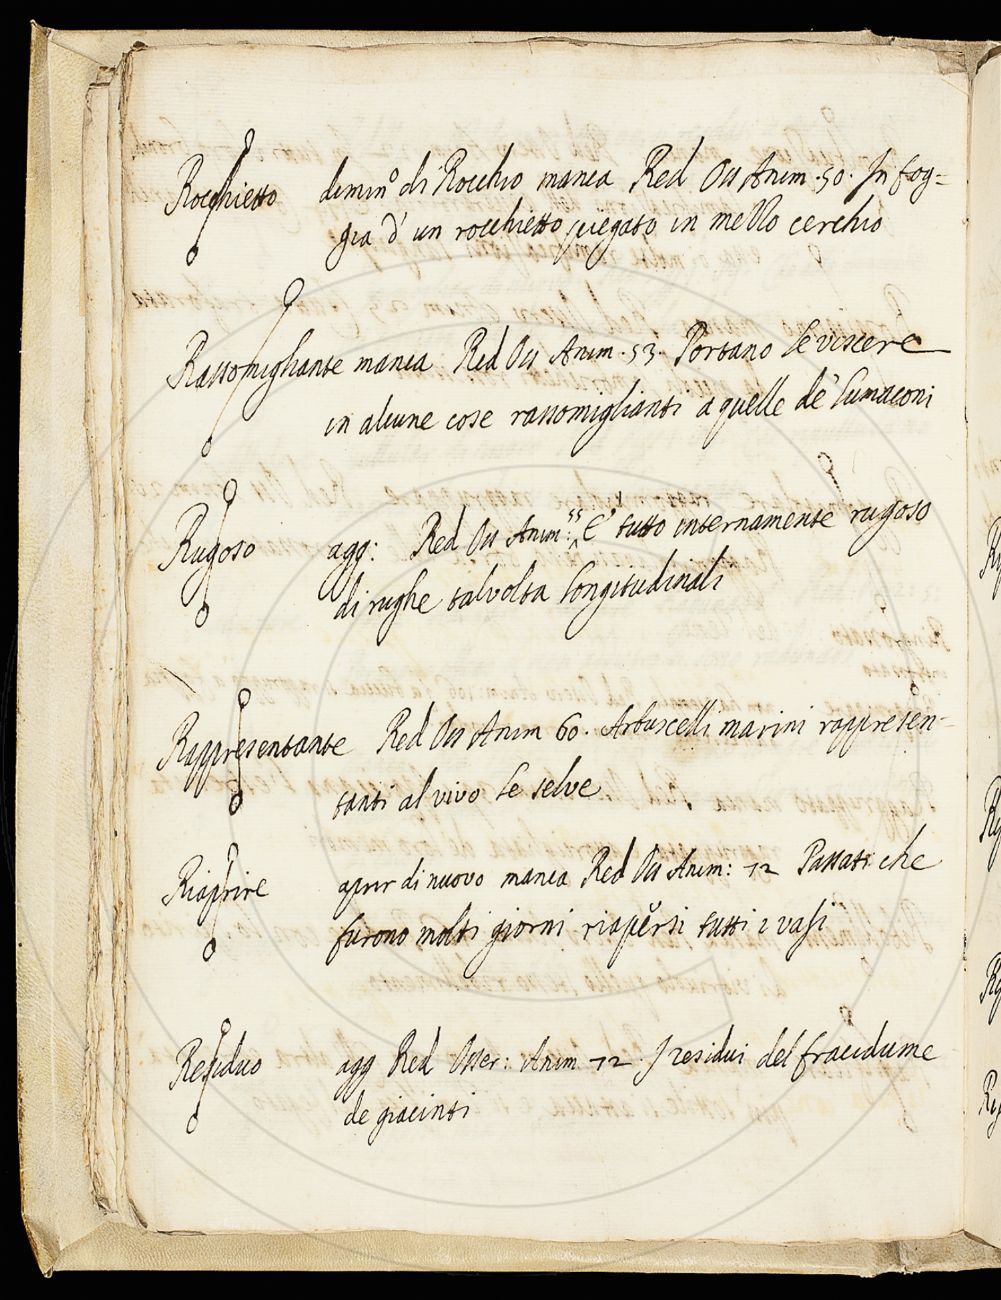 Rocchietto dimin.o di Rocchio manca Red Oss Anim. 50. In fog=
gia d' un rocchietto piegato in mezzo cerchio
Rassomigliante manca Red Oss Anim. 53. Portano le viscere
in alcune cose rassomiglianti a quelle de' Lumaconi
Rugoso agg: Red Oss Anim: 55 E' tutto internamente rugoso
di rughe talvolta longitudinali
Rappresentante Red Oss Anim 60. Arbuscelli marini rappresen-
tanti al vivo le selve
Riaprire aprir di nuovo manca Red Oss Anim: 72 Passati che
furono molti giorni riapersi tutti i vasi
Residuo agg Red Osser: Anim 72. I residui del fracidume
de giacinti